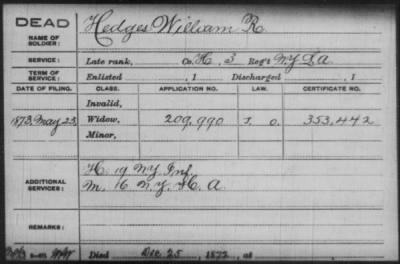 DEAD
NAME OF SOLDIER:
Hedges William R
SERVICE:
Late rank, Co. H, 3 Reg't N.Y. L A
TERM OF SERVICE:
Enlisted , 1 Discharged , 1
DATE OF FILING. CLASS. APPLICATION NO. LAW. CERTIFICATE NO.
Invalid,
1873, May 23, Widow, 209,990 J. O. 353,442
Minor,
ADDITIONAL SERVICES:
H. 19 N.Y. Inf.
M. 16 N.Y. H. A
REMARKS:
Died Dec 25, 1872, at